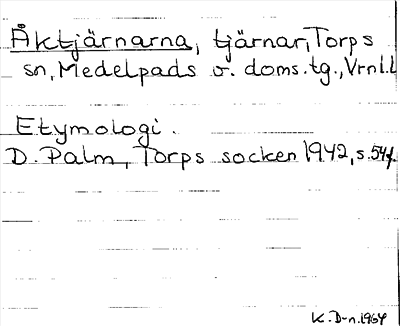 Åktjärnarna, tjärnar, Torps
sn, Medelpads v. doms.tg., Vrnl.l
Etymologi.
D. Palm, Torps socken 1942, s. 54f.
K. D-n. 1964